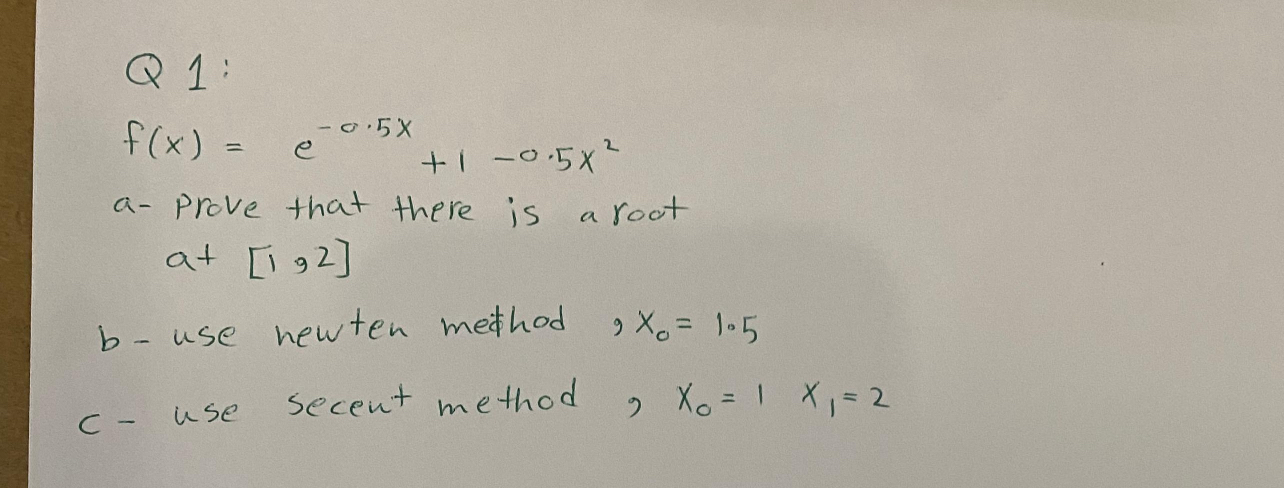 Q 1:
f(x) = e^{-0.5x} + 1 - 0.5x²
a- prove that there is a root
at [1,2]
b- use newten method , X₀ = 1.5
c- use secent method , X₀ = 1 X₁ = 2